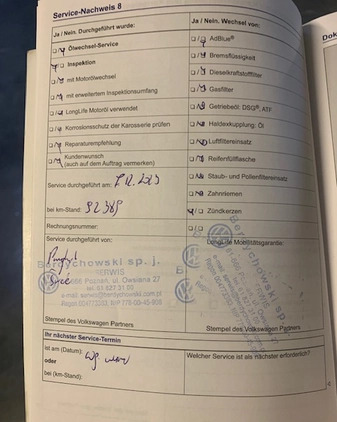 Service-Nachweis 8
Dok
Ja / Nein. Durchgeführt wurde:
Ölwechsel-Service
Inspektion
mit Motorölwechsel
mit erweitertem Inspektionsumfang
LongLife Motoröl verwendet
Korrosionsschutz der Karosserie prüfen
Reparaturempfehlung
Kundenwunsch
(auch auf dem Auftrag vermerken)
Service durchgeführt am:
bei km-Stand:
Rechnungsnummer:
Service durchgeführt von:
Berdychowski sp. j.
SERWIS
Poznań, ul. Owsiana 27
Stempel des Volkswagen Partners
Ja / Nein. Wechsel von:
AdBlue®
Bremsflüssigkeit
Dieselkraftstofffilter
Gasfilter
Getriebeöl: DSG®, ATF
Haldexkupplung: Öl
Luftfiltereinsatz
Reifenfüllflasche
Staub- und Pollenfiltereinsatz
Zahnriemen
Zündkerzen
LongLife Mobilitätsgarantie:
Berdychowski sp.
Stempel des Volkswagen Partners
Ihr nächster Service-Termin
ist am (Datum):
oder
bei (km-Stand):
Welcher Service ist als nächster erforderlich?